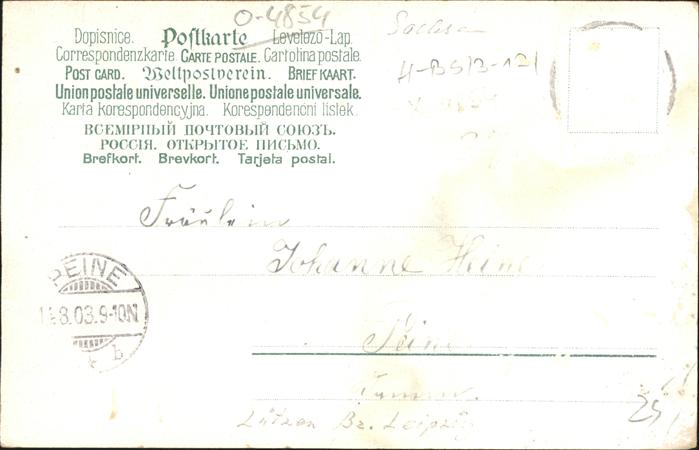 O-4854
Dopisnice. Postkarte Levelező-Lap.
Correspondenzkarte. CARTE POSTALE. Cartolina postale.
POST CARD. Weltpostverein. BRIEFKAART.
Union postale universelle. Unione postale universale.
Karta korespondencyjna. Korespondenční lístek.
ВСЕМІРНЫЙ ПОЧТОВЫЙ СОЮЗЪ.
РОССІЯ. ОТКРЫТОЕ ПИСЬМО.
Brefkort. Brevkort. Tarjeta postal.
Sachsen
Fräulein
Johanne Heine
PEINE
8.03.9-10N
b
Peine
Lützen Bz. Leipzig